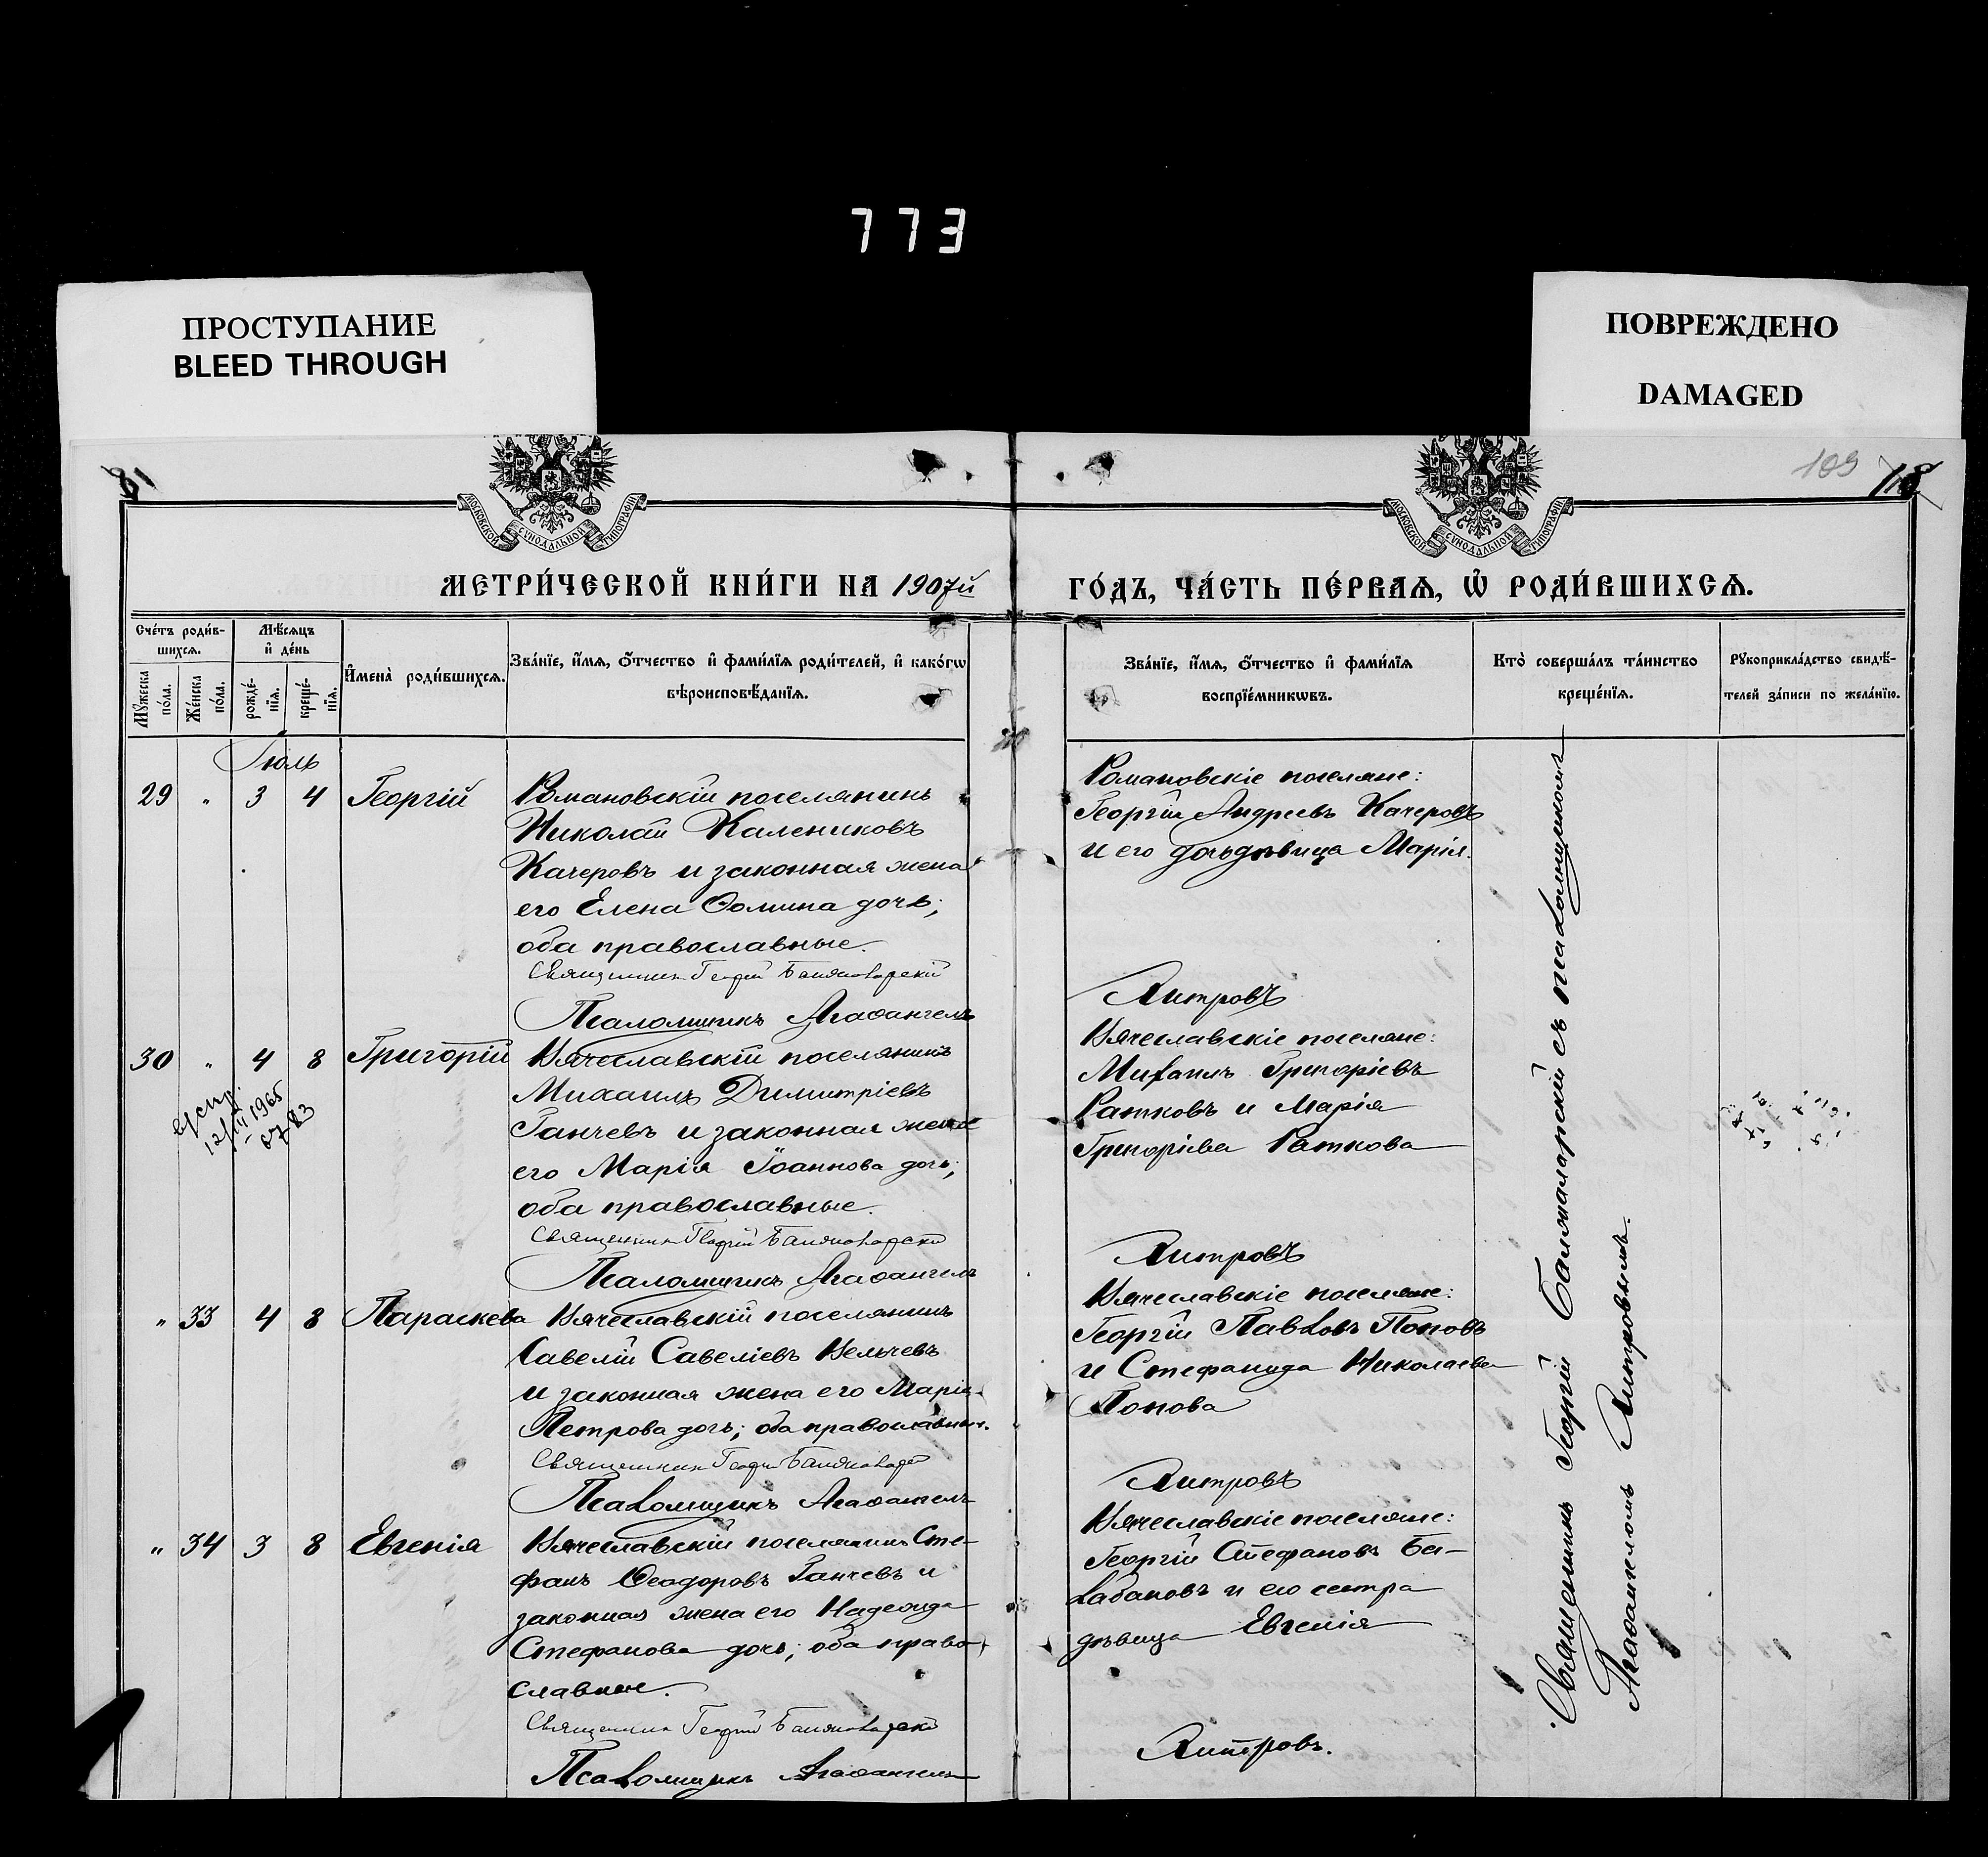 773
ПРОСТУПАНИЕ
BLEED THROUGH
ПОВРЕЖДЕНО
DAMAGED
81
109
118
МОСКОВСКОЙ СѴНОДАЛЬНОЙ ТИПОГРАФІИ
МОСКОВСКОЙ СѴНОДАЛЬНОЙ ТИПОГРАФІИ
МЕТРИ́ЧЕСКОЙ КНИ́ГИ НА 1907й
ГО́ДЪ, ЧА́СТЬ ПЕ́РВАѦ, Ѽ РОДИ́ВШИХСѦ.
Сче́тъ роди́в-
шихсѧ.
Мѣ́сѧцъ
и҆ де́нь
Мꙋ́жеска
по́ла.
Же́нска
по́ла.
рожде́-
нїѧ.
креще́-
нїѧ.
И҆мена̀ роди́вшихсѧ.
Зва́нїе, и҆́мѧ, ѻ҆́тчество и҆ фами́лїѧ роди́телей, и҆ како́гѡ
вѣроисповѣ́данїѧ.
Зва́нїе, и҆́мѧ, ѻ҆́тчество и҆ фами́лїѧ
воспрїе́мникѡвъ.
Кто̀ соверша́лъ та́инство
креще́нїѧ.
Рꙋкоприкла́дство свидѣ́-
телей за́писи по жела́нїю.
Іюль
29 " 3 4 Георгій
Романовскій поселянинъ
Николай Калениковъ
Качеровъ и законная жена
его Елена Ѳомина дочь;
оба православные.
Священникъ Георгій
Псаломщикъ Агаѳангелъ
Романовскіе поселяне:
Георгій Андреевъ Качеровъ
и его дочь дѣвица Марія.
Хитровъ
30 " 4 8 Григорій
12/III 1965
Вячеславскій поселянинъ
Михаилъ Димитріевъ
Ганчевъ и законная жена
его Марія Іоаннова дочь;
оба православные.
Священникъ Георгій
Псаломщикъ Агаѳангелъ
Вячеславскіе поселяне:
Михаилъ Григоріевъ
Ратковъ и Марія
Григоріева Раткова
Хитровъ
" 33 4 8 Параскева
Вячеславскій поселянинъ
Савелій Савеліевъ Вельчевъ
и законная жена его Марія
Петрова дочь; оба православные.
Священникъ Георгій
Псаломщикъ Агаѳангелъ
Вячеславскіе поселяне:
Георгій Павловъ Поповъ
и Стефанида Николаева
Попова
Хитровъ
" 34 3 8 Евгенія
Вячеславскій поселянинъ Сте-
фанъ Ѳеодоровъ Ганчевъ и
законная жена его Надежда
Стефанова дочь; оба право-
славные.
Священникъ Георгій
Псаломщикъ Агаѳангелъ
Вячеславскіе поселяне:
Георгій Стефановъ Ба-
лабановъ и его сестра
дѣвица Евгенія
Хитровъ.
Священникъ Георгій съ псаломщикомъ
Агаѳангеломъ Хитровымъ.